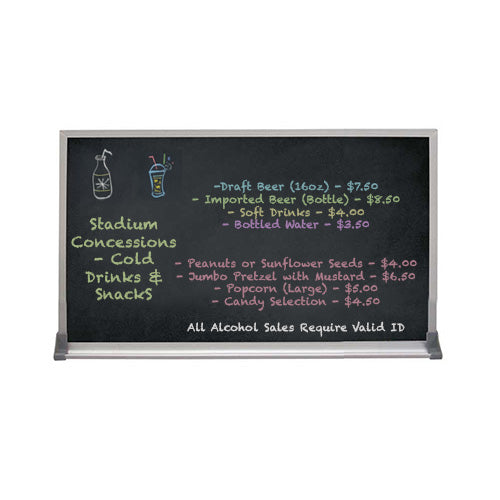 Stadium
Concessions
- Cold
Drinks &
Snacks
-Draft Beer (16oz) - $7.50
- Imported Beer (Bottle) - $8.50
- Soft Drinks - $4.00
- Bottled Water - $3.50
- Peanuts or Sunflower Seeds - $4.00
- Jumbo Pretzel with Mustard - $6.50
- Popcorn (Large) - $5.00
- Candy Selection - $4.50
All Alcohol Sales Require Valid ID